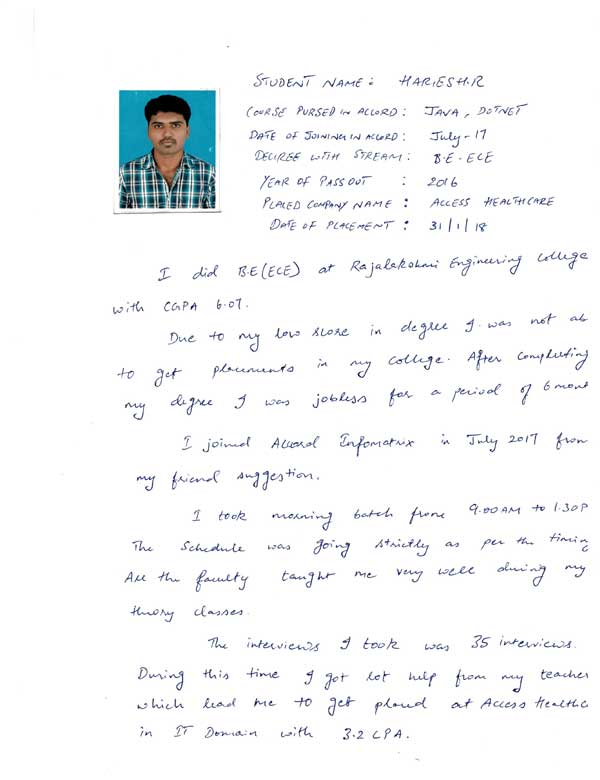 STUDENT NAME: HARIESH.R
COURSE PURSED IN ACCORD: JAVA, DOTNET
DATE OF JOINING IN ACCORD: July-17
DEGREE WITH STREAM: B.E-ECE
YEAR OF PASS OUT : 2016
PLACED COMPANY NAME : ACCESS HEALTHCARE
DATE OF PLACEMENT : 31/1/18
I did B.E(ECE) at Rajalakshmi Engineering College
with CGPA 6.07.
Due to my low score in degree I was not ab
to get placements in my college. After completing
my degree I was jobless for a period of 6 mont
I joined Accord Infomatrix in July 2017 from
my friend suggestion.
I took morning batch from 9.00AM to 1.30P
The Schedule was going strictly as per the timing
All the faculty taught me very well during my
theory classes.
The interviews I took was 35 interviews.
During this time I got lot help from my teacher
which lead me to get placed at Access Healthc
in IT Domain with 3.2 LPA.